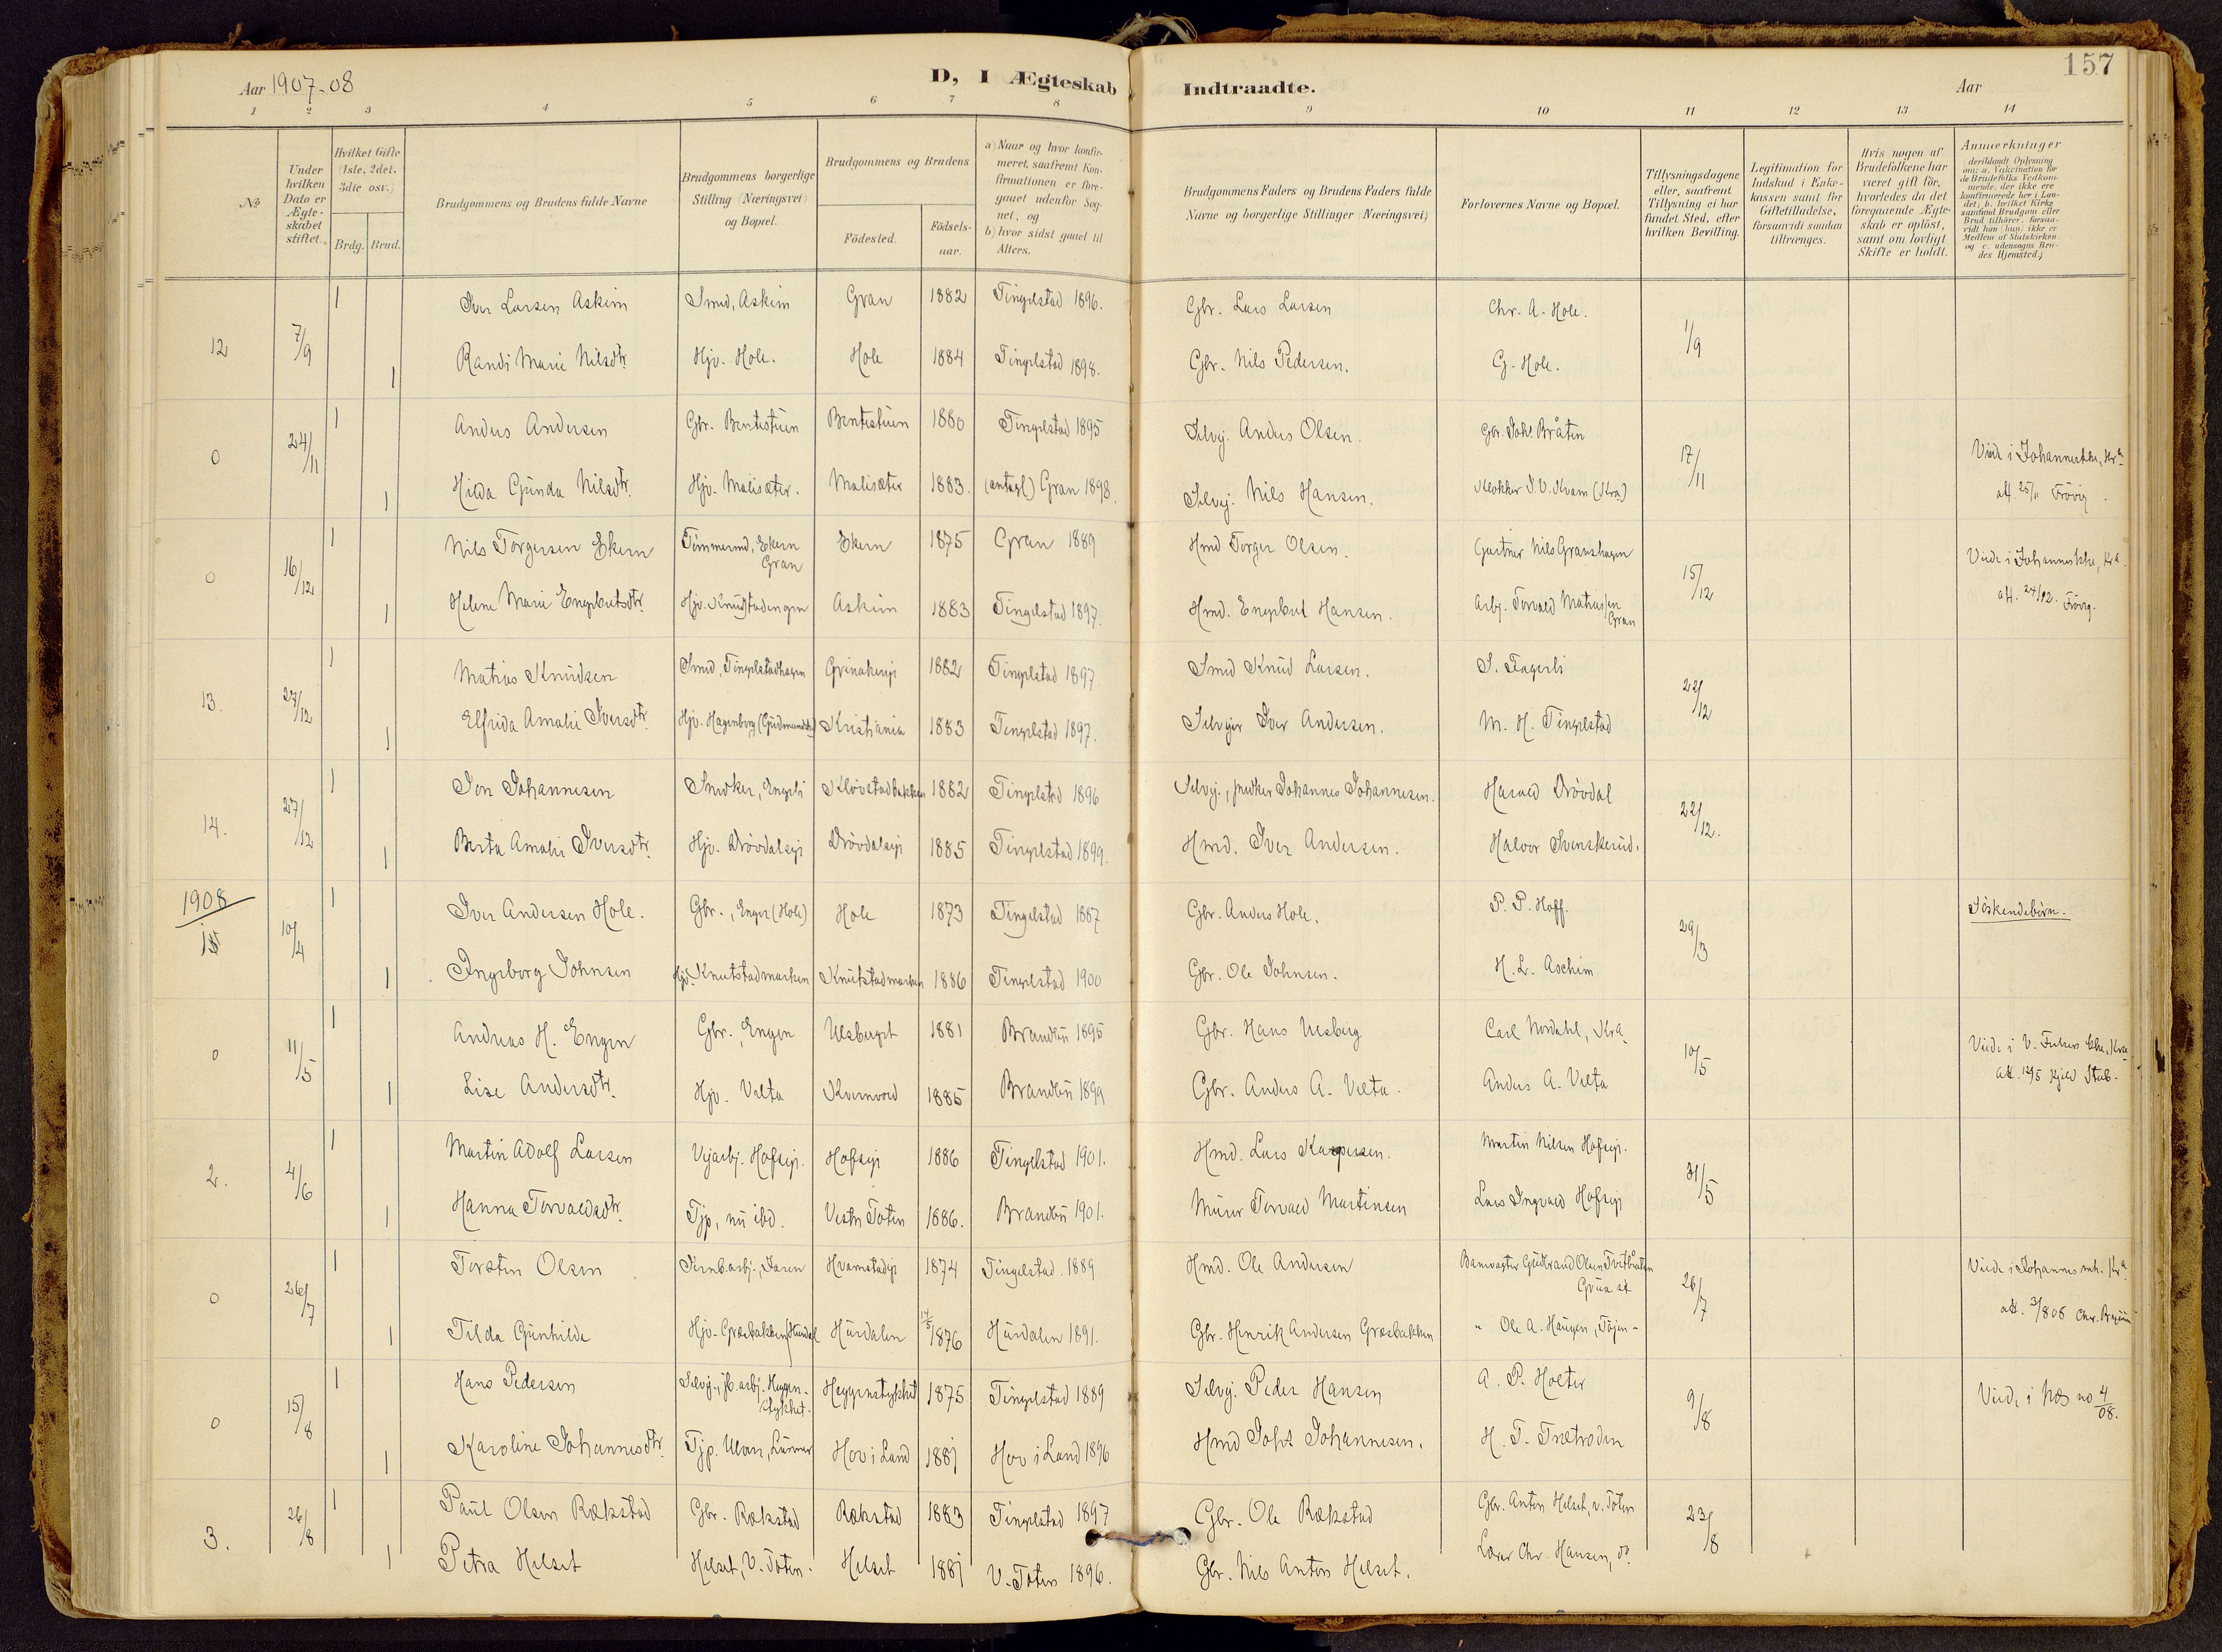 Aar 1907-08
D, I Ægteskab Indtraadte.
Aar
157
1 2 3 4 5 6 7 8 9 10 11 12 13 14
No
Under hvilken Dato er Ægte-skabet stiftet.
Hvilket Gifte (1ste, 2det, 3die osv.)
Brdg. Brud.
Brudgommens og Brudens fulde Navne
Brudgommens borgerlige Stilling (Næringsvei) og Bopæl.
Brudgommens og Brudens
Födested.
Födsels-aar.
a) Naar og hvor konfir-meret, saafremt Kon-firmationen er fore-gaaet udenfor Sog-net, og
b) hvor sidst gaaet til Alters.
Brudgommens Faders og Brudens Faders fulde Navne og borgerlige Stillinger (Næringsvei)
Forlovernes Navne og Bopæl.
Tillysningsdagene eller, saafremt Tillysning ei har fundet Sted, efter hvilken Bevilling.
Legitimation for Indskud i Enke-kassen samt for Giftetilladelse, forsaavidt saadan tiltrænges.
Hvis nogen af Brudefolkene har været gift för, hvorledes da det foregaaende Ægte-skab er oplöst, samt om lovligt Skifte er holdt.
Anmerkninger (deriblandt Oplysning om: a. Vakcination for de Brudefolks Vedkom-mende, der ikke ere konfirmerede her i Lan-det; b. hvilket Kirke-samfund Brudgom eller Brud tilhörer, forsaa-vidt han (hun) ikke er Medlem af Statskirken, og c. udensogns Bru-des Hjemsted.)
12 7/9 1 Iver Larsen Askim Smed, Askim Gran 1882 Tingelstad 1896. Gbr. Lars Larsen Chr. A. Hole. 1/9
1 Randi Marie Nilsdtr. Hjv. Hole. Hole 1884 Tingelstad 1898. Gbr. Nils Pedersen. G. Hole.
0 24/11 1 Anders Andersen Gbr. Bentestuen Bentestuen 1880 Tingelstad 1895 Selvej. Anders Olsen. Gbr. Johs Bråten 17/11 Viede i Johanneskke, Kra.
1 Hilda Gunda Nilsdtr. Hjv. Malisæter. Malisæter 1883. (antagl) Gran 1898. Selvej. Nils Hansen. Klokker I. V. Kvam (Kra.) att. 25/11 Frövig.
0 16/12 1 Nils Torgersen Ekern Tömmermd, Ekern Gran Ekern 1875 Gran 1889 Hmd Torger Olsen. Gartner Nils Granshagen 15/12 Viede i Johanneskke, Kra.
1 Helene Marie Engebretsdtr. Hjv. Knudstadengen Askim 1883 Tingelstad 1897. Hmd. Engebret Hansen. Arbj. Torvald Matiassen Gran att. 24/12. Frövig.
13. 27/12 1 Matias Knudsen Smed, Tingelstadhagen Grinakerejr 1882 Tingelstad 1897 Smed Knud Larsen. S. Fagerli 22/12
1 Elfrida Amalie Iversdtr. Hjv. Hagenborg Kristiania 1883 Tingelstad 1897. Selvejer Iver Andersen. M. H. Tingelstad
14. 27/12 1 Jon Johannesen Snedker, Engeli Klövstadbakken 1882 Tingelstad 1896 Selvej., snedker Johannes Johannesen. Harald Drövdal 22/12.
1 Berta Amalie Iversdtr. Hjv. Drövdalsejr Drövdalsejr 1885 Tingelstad 1899. Hmd. Iver Andersen. Halvor Svenskerud.
1908
1 10/4 1 Iver Andersen Hole. Gbr., Enger (Hole) Hole 1873 Tingelstad 1887 Gbr. Anders Hole. P. P. Hoff. 29/3 Söskendebörn.
1 Ingeborg Johnsen Hjv. Knutstadmarken Knutstadmarken 1886 Tingelstad 1900 Gbr. Ole Johnsen. H. L. Aschim
0 11/5 1 Andreas H. Engen Gbr., Engen 1881 Brandbu 1895 Gbr. Hans Ulsberg Carl Nordahl, Kra. 10/5 Viede i V. Frikers kke, Kra
1 Lise Andersdtr. Hjv. Velta Kvernvold 1885 Brandbu 1899 Gbr. Anders A. Velta. Anders A. Velta att. 12/5 Kjeld Stub.
2. 4/6 1 Martin Adolf Larsen Vejarbj. Hofsejr. Hofsejr 1886 Tingelstad 1901. Hmd. Lars Kaspersen. Martin Nilsen Hofsejr. 31/5
1 Hanna Torvaldsdtr. Tjp, nu ibd. Vestre Toten 1886. Brandbu 1901. Murer Torvald Martinsen Lars Ingvald Hofsejr
0 26/7 1 Torsten Olsen Jernb.arbj., Jaren Hvamstadejr 1874 Tingelstad 1889 Hmd. Ole Andersen Banevogter Gudbrand Olsen Tveitbråten Grua st 26/7 Viede i Johannes mh. Kra.
1 Tilda Gunhilde Hjv. Græsbakken (Hurdal 14/5 1876 Hurdalen Hurdalen 1891. Gbr. Henrik Andersen Græsbakken " Ole A. Haugen, Töjen- att. 3/8 08 Chr. Brun
0 15/8 1 Hans Pedersen Selvej., jb.arbj. Heggen-stykket. Heggenstykket 1875 Tingelstad 1889 Selvej. Peder Hansen A. P. Holter 9/8 Viede i Næs no 4/08.
1 Karoline Johannesdtr. Tjp. Ulven, Lunner Hov i Land 1881 Hov i Land 1896 Hmd Johs Johannesen. H. T. Trætroden
3. 26/8 1 Paul Olsen Rækstad Gbr. Rækstad Rækstad 1883 Tingelstad 1897 Gbr. Ole Rækstad Gbr. Anton Helset, v. Toten 23/8
1 Petra Helset Helset, V. Toten. Helset 1881 V. Toten 1896. Gbr. Nils Anton Helset. Lærer Chr. Hansen, do.